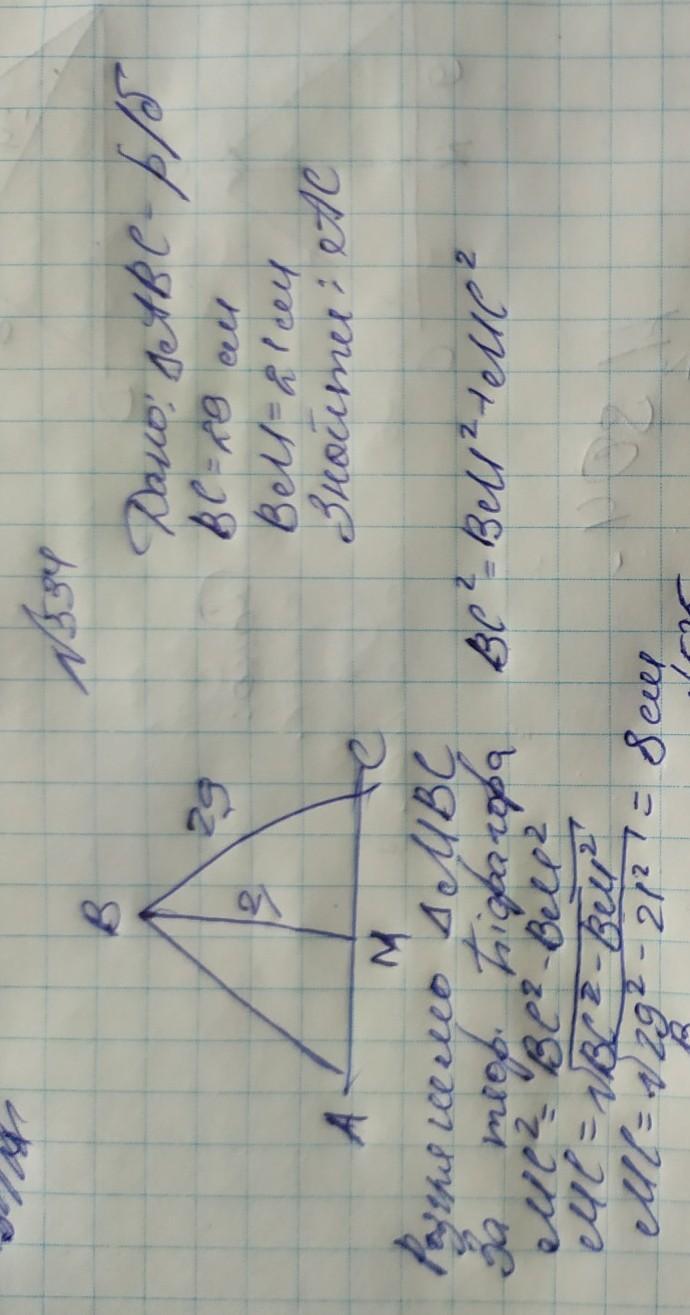 №594
Дано: ΔABC - р/б
BC = 29 см
BM = 21 см
Знайти: AC
B
29
21
A
M
C
Розглянемо ΔMBC
За теор. Піфагора
BC² = BM² + MC²
MC² = BC² - BM²
MC = √BC² - BM²
MC = √29² - 21² = 8 см